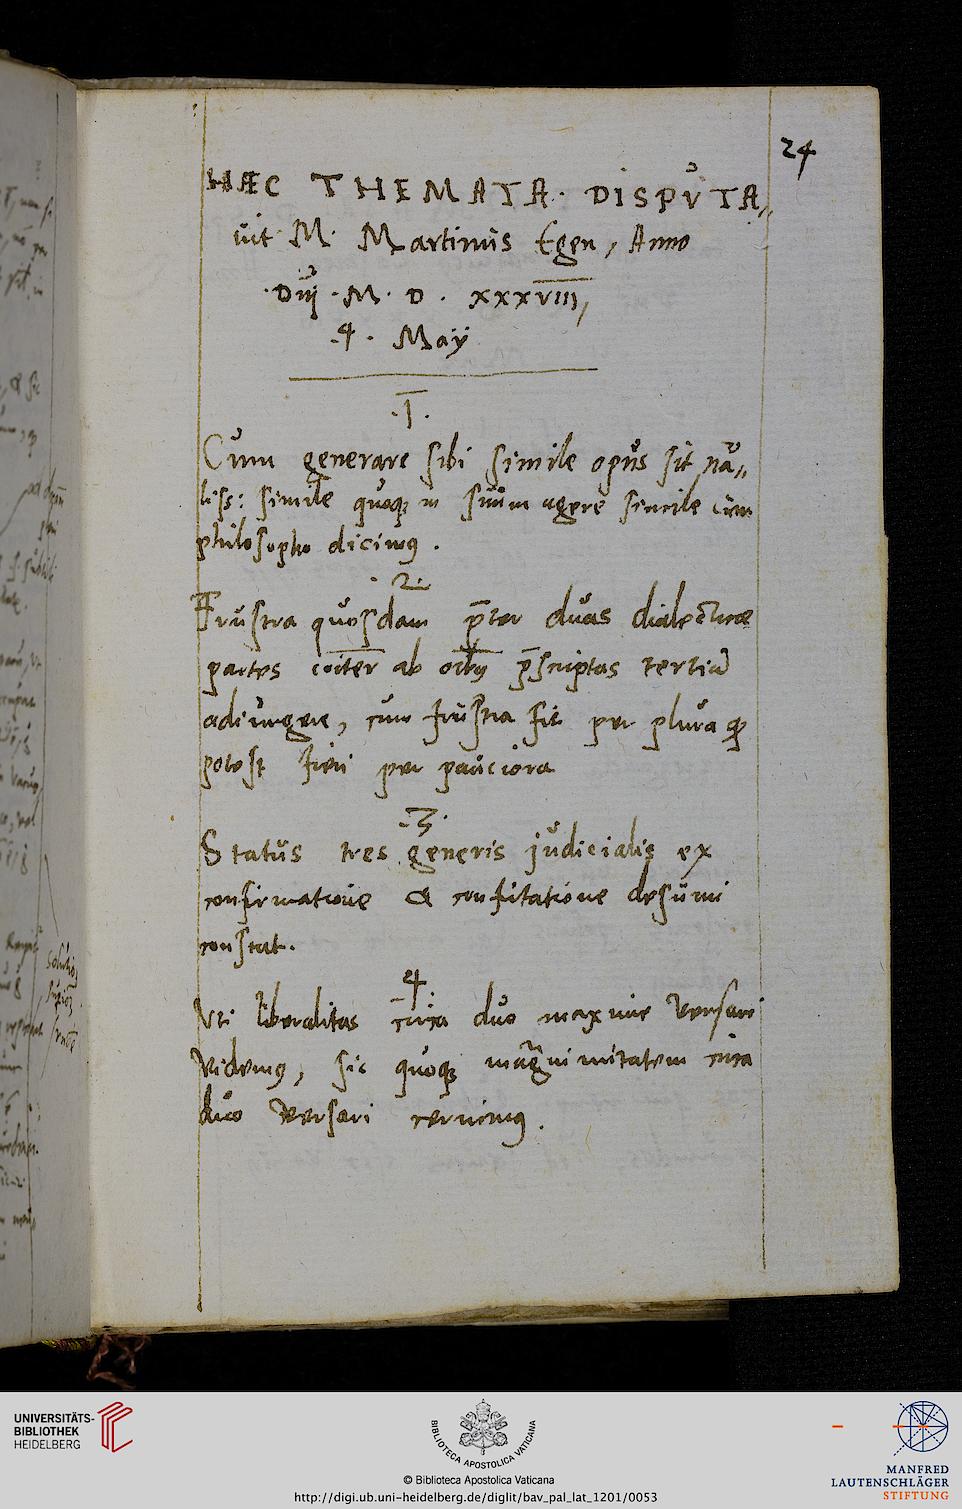 24
HÆC THEMATA DISPVTA„
uit M. Martinus Egen, Anno
Dnj. M. D. xxxviii,
.4. Maÿ
.1.
Cum generare sibi simile opus sit nã„
liss: simile quoque in suum agere simile cum
philosopho dicimus.
.2.
Frustra quosdam p̄ter duas dialecticæ
partes coiter ab oibus p̄scriptas tertiã
adiungere, cum frustra fit per plura qd
potest fieri per pauciora
.3.
Status tres generis judicialis ex
confirmatione & confutatione desumi
constat.
4
Vti liberalitas circa duo maxime versari
videmus, sic quoque magnimitatem circa
duo versari cernimus.
UNIVERSITÄTS-
BIBLIOTHEK
HEIDELBERG
BIBLIOTECA APOSTOLICA VATICANA
© Biblioteca Apostolica Vaticana
http://digi.ub.uni-heidelberg.de/diglit/bav_pal_lat_1201/0053
MANFRED
LAUTENSCHLÄGER
STIFTUNG